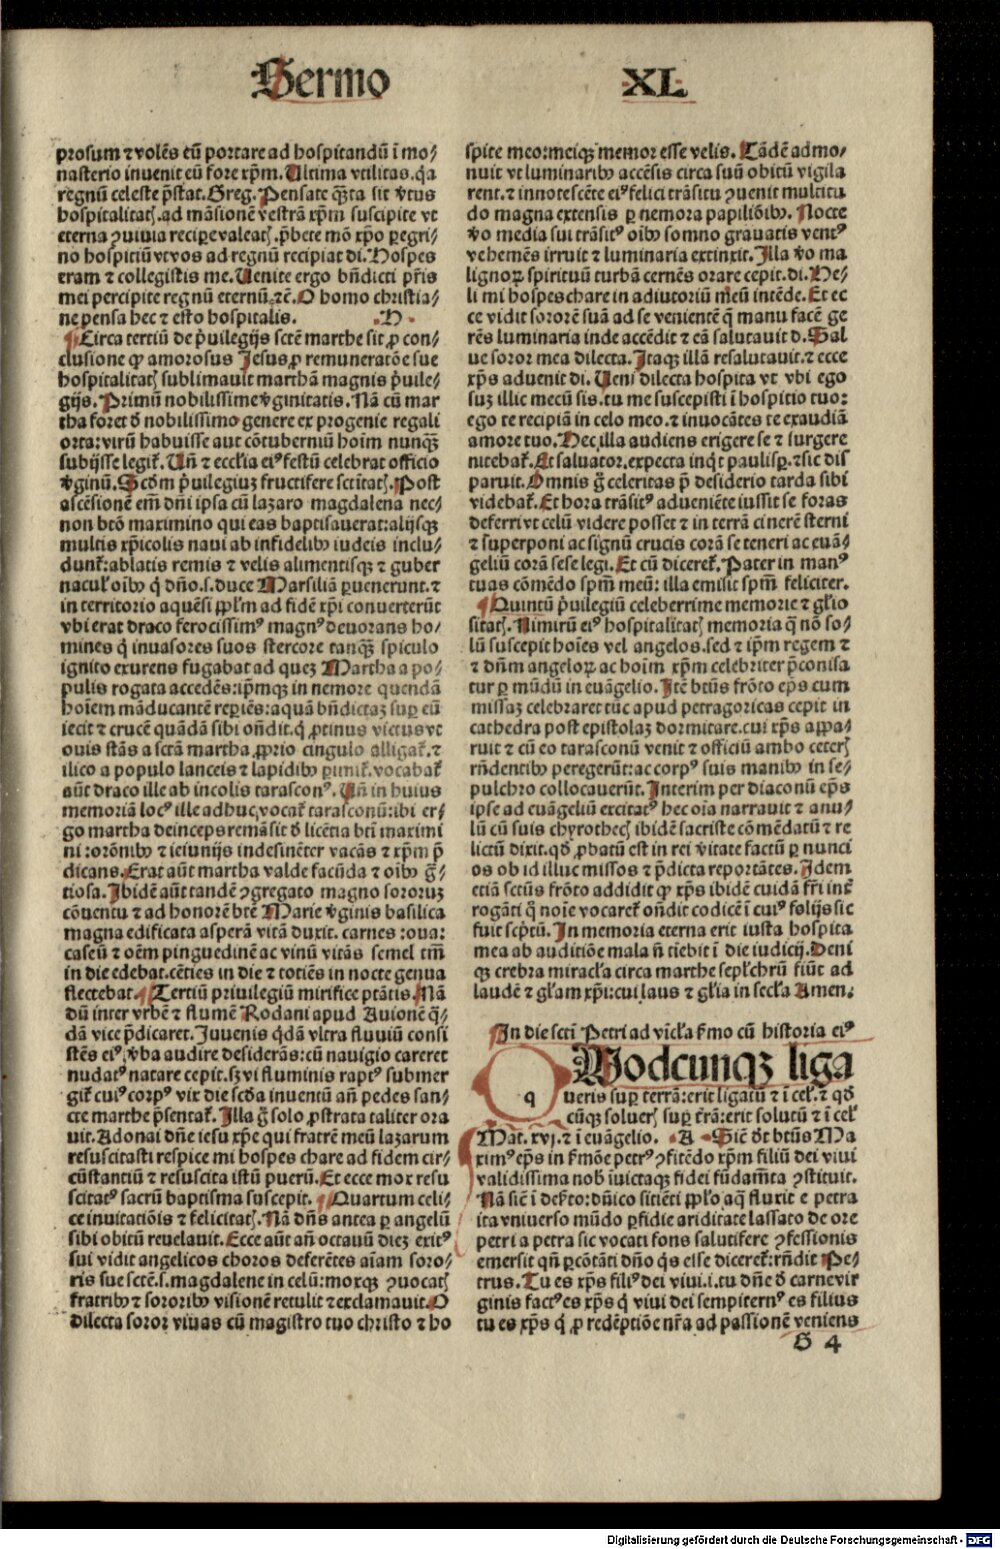 Sermo XL
prosum ⁊ volẽs eũ portare ad hospitandũ ĩ mo⸗
nasterio inuenit eũ fore xp̄m. Ultima vtilitas. q̇a
regnũ celeste p̄stat. Greg. Pensate q̃ꝫta sit v̓tus
hospitalitatꝭ. ad mãsionẽ vestrã xp̄m suscipite vt
eterna ꝯuiuia recipe valeatꝭ. p̄bete mõ xp̄o peregri⸗
no hospitiũ vt vos ad regnũ recipiat di. Hospes
eram ⁊ collegistis me. Uenite ergo bñdicti pr̄is
mei percipite regnũ eternũ. ⁊c̃. O homo christia⸗
ne pensa hec ⁊ esto hospitalis. .H.
Circa tertiũ de p̓uilegijs sct̃e marthe sit ꝓ con⸗
clusione ꝙ amorosus Jesus ꝓ remuneratõe sue
hospitalitatꝭ sublimauit marthã magnis p̓uile⸗
gijs. Primũ nobilissime v̓ginitatis. Nã cũ mar
tha foret d̓ nobilissimo genere ex progenie regali
orta: virũ habuisse aut cõtuberniũ hoim nunq̃ꝫ
subijsse legit̃. Uñ ⁊ eccl̃ia eiꝰ festũ celebrat officio
v̓ginũ. Scd̃m p̓uilegiuꝫ fructifere sctĩtatꝭ. Post
ascẽsionẽ em̃ dñi ipsa cũ lazaro magdalena nec⸗
non btõ maximino qui eas baptisauerat: alijsqꝫ
multis xp̃icolis naui ab infidelibꝰ iudeis inclu⸗
dunt̃: ablatis remis ⁊ velis alimentisqꝫ ⁊ guber
nacul̃ oĩbꝰ q̇ dño. s. duce Marsiliã peruenerunt. ⁊
in territorio aquẽsi pp̃lm ad fidẽ xp̃i conuerterũt
vbi erat draco ferocissimꝰ magnꝰ deuorans ho⸗
mines q̇ inuasores suos stercore tanq̃ꝫ spiculo
ignito exurens fugabat ad queꝫ Martha a po⸗
pulis rogata accedẽs: ip̃mqꝫ in nemore quendã
hoĩem mãducantẽ reperiẽs: aquã bñdictaꝫ sup eũ
iecit ⁊ crucẽ quãdã sibi oñdit. q̇ ꝓtinus victus vt
ouis stãs a sctã martha ꝓprio cingulo alligat̃. ⁊
ilico a populo lanceis ⁊ lapidibꝰ perimit̃. vocabat̃
aũt draco ille ab incolis tarasconꝰ. Uñ in huius
memoriã locꝰ ille adhuc vocat̃ tarasconũ: ibi er⸗
go martha deinceps remãsit d̓ licẽtia bt̃i maximi
ni: orõnibꝰ ⁊ ieiunijs indesinẽter vacãs ⁊ xp̃m p̃
dicans. Erat aũt martha valde facũda ⁊ oĩbꝰ g̃⸗
tiosa. Ibidẽ aũt tandẽ ꝯgregato magno sororuꝫ
cõuentu ⁊ ad honorẽ bt̃e Marie v̓ginis basilica
magna edificata asperã vitã duxit. carnes: oua:
caseũ ⁊ oẽm pinguedinẽ ac vinũ vitãs semel tm̃
in die edebat. cẽties in die ⁊ totiẽs in nocte genua
flectebat. Tertiũ privilegiũ mirifice ptãtis. Nã
dũ inter vrbẽ ⁊ flumẽ Rodani apud Auionẽ q̃⸗
dã vice p̃dicaret. Juvenis q̇dã vltra fluuiũ consi
stẽs eiꝰ v̓ba audire desiderãs: cũ nauigio careret
nudatꝰ natare cepit. sꝫ vi fluminis raptꝰ submer
git̃ cuiꝰ corpꝰ vix die scd̃a inuentũ añ pedes san⸗
cte marthe p̃sentat̃. Illa g̃ solo ꝓstrata taliter ora
uit. Adonai dñe iesu xp̃e qui fratrẽ meũ lazarum
resuscitasti respice mi hospes chare ad fidem cir⸗
cũstantiũ ⁊ resuscita istũ puerũ. Et ecce mox resu
scitatꝰ sacrũ baptisma suscepit. Quartum celi⸗
ce inuitatiõis ⁊ felicitatꝭ. Nã dñs antea per angelũ
sibi obitũ reuelauit. Ecce aũt añ octauũ dieꝫ exitꝰ
sui vidit angelicos choros deferẽtes aĩam soro⸗
ris sue sctẽ. s. magdalene in celũ: moxqꝫ ꝯuocatꝭ
fratribꝰ ⁊ sororibꝰ visionẽ retulit ⁊ exclamauit. O
dilecta soror viuas cũ magistro tuo christo ⁊ ho
spite meo: meiqꝫ memor esse velis. Tãdẽ admo⸗
nuit vt luminaribꝰ accẽsis circa suũ obitũ vigila
rent. ⁊ innotescẽte eiꝰ felici trãsitu ꝯuenit multitu
do magna extensis per nemora papiliõibꝰ. Nocte
v̓o media sui trãsitꝰ oĩbꝰ somno grauatis ventꝰ
vehemẽs irruit ⁊ luminaria extinxit. Illa v̓o ma
lignoꝝ spirituũ turbã cernẽs orare cepit. di. He⸗
li mi hospes chare in adiutoriũ meũ intẽde. Et ec
ce vidit sororẽ suã ad se venientẽ q̃ manu facẽ ge
rẽs luminaria inde accẽdit ⁊ eã salutauit d. Sal
ue soror mea dilecta. Itaqꝫ illã resalutauit. ⁊ ecce
xp̃s aduenit di. Ueni dilecta hospita vt vbi ego
suꝫ illic mecũ sis. tu me suscepisti ĩ hospitio tuo:
ego te recipiã in celo meo. ⁊ inuocãtes te exaudiã
amore tuo. Hec illa audiens erigere se ⁊ surgere
nitebat̃. Et saluator. expecta inq̇t paulisper. ⁊ sic dis
paruit. Omnis g̃ celeritas p̃ desiderio tarda sibi
videbat̃. Et hora trãsitꝰ adueniẽte iussit se foras
deferri vt celũ videre posset ⁊ in terrã cinerẽ sterni
⁊ superponi ac signũ crucis corã se teneri ac euã⸗
geliũ corã se se legi. Et cũ diceret̃. Pater in manꝰ
tuas cõmẽdo spm̃ meũ: illa emisit spm̃ feliciter.
Quintũ p̓uilegiũ celeberrime memorie ⁊ gl̃io
sitatꝭ. Nimirũ eiꝰ hospitalitatꝭ memoria q̃ nõ so⸗
lũ suscepit hoĩes vel angelos. sed ⁊ ip̃m regem ⁊
⁊ dñm angeloꝝ ac hoĩm xp̃m celebriter p̃conisa
tur per mũdũ in euãgelio. Itẽ bt̃us frõto ep̃s cum
missaꝫ celebraret tũc apud petragoricas cepit in
cathedra post epistolaꝫ dormitare. cui xp̃s appa⸗
ruit ⁊ cũ eo tarasconũ venit ⁊ officiũ ambo ceterꝭ
rñdentibꝰ peregerũt: ac corpꝰ suis manibꝰ in se⸗
pulchro collocauerũt. Interim per diaconũ ep̃s
ipse ad euãgeliũ excitatꝰ hec oĩa narrauit ⁊ anu⸗
lũ cũ suis chyrothecꝭ ibidẽ sacriste cõmẽdatũ ⁊ re
lictũ dixit. qd̓ ꝓbatũ est in rei v̓itate factũ per nunci
os ob id illuc missos ⁊ p̃dicta reportãtes. Idem
etiã sctũs frõto addidit ꝙ xp̃s ibidẽ cuidã fr̃i inẽ
rogãti q̃ noĩe vocaret̃ oñdit codicẽ ĩ cuiꝰ folijs sic
fuit sc̃ptũ. In memoria eterna erit iusta hospita
mea ab auditiõe mala ñ tĩebit ĩ die iudicij. Deni
qꝫ crebra miracl̃a circa marthe sepl̃chrũ fiũt ad
laudẽ ⁊ gl̃am xp̃i: cui laus ⁊ gl̃ia in secl̃a Amen.
In die sct̃i Petri ad vĩcl̃a s̃mo cũ historia eiꝰ
Qodcunqꝫ liga
q ueris sup terrã: erit ligatũ ⁊ ĩ cel̃. ⁊ qd̓
cũqꝫ soluerꝭ sup t̃rã: erit solutũ ⁊ ĩ cel̃
Mat. xvj. ⁊ ĩ euãgelio. A Sic̃ d̓t bt̃us Ma
ximꝰ ep̃s in s̃mõe petrꝰ ꝯfitẽdo xp̃m filiũ dei viui
validissima nob̃ ĩuictaqꝫ fidei fũdam̃ta ꝯstituit.
Nã sic̃ ĩ des̃to: dñico sitiẽti pp̃lo aq̃ fluxit e petra
ita vniuerso mũdo perfidie ariditate lassato de ore
petri a petra sic vocati fons salutifere ꝯfessionis
emersit qñ percõtãti dño q̇s esse diceret̃: rñdit Pe⸗
trus. Tu es xp̃s filiꝰ dei viui. i. tu dñe d̓ carne vir
ginis factꝰ es xp̃s q̇ viui dei sempiternꝰ es filius
tu es xp̃s q̇ ꝓ redẽptiõe nr̃a ad passionẽ veniens
G 4
Digitalisierung gefördert durch die Deutsche Forschungsgemeinschaft - DFG